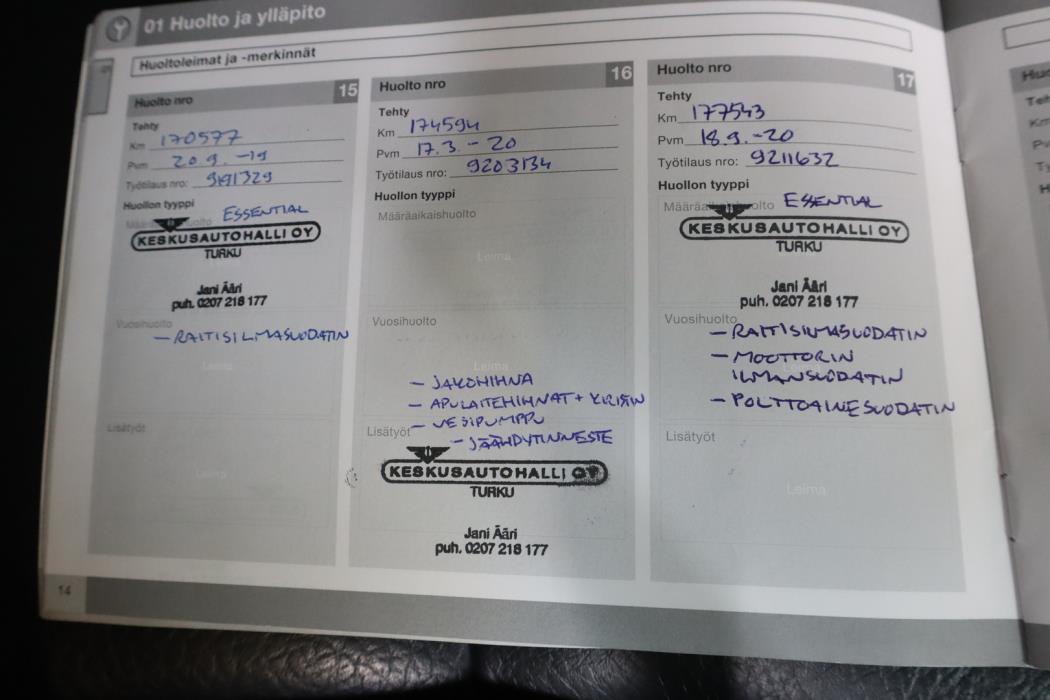 01 Huolto ja ylläpito
Huoltoleimat ja -merkinnät
Huolto nro 15
Tehty
Km 170577
Pvm 20.9.-19
Työtilaus nro: 9191329
Huollon tyyppi
Määräaikaishuolto ESSENTIAL
KESKUSAUTOHALLI OY
TURKU
Jani Ääri
puh. 0207 218 177
Vuosihuolto
- RAITISILMASUODATIN
Leima
Lisätyöt
Leima
Huolto nro 16
Tehty
Km 174594
Pvm 17.3.-20
Työtilaus nro: 9203134
Huollon tyyppi
Määräaikaishuolto
Leima
Vuosihuolto
Leima
- JAKOHIHNA
- APULAITEHIHNAT + KIRISIN
- VESIPUMPPU
Lisätyöt
- JÄÄHDYTINNESTE
KESKUSAUTOHALLI OY
TURKU
Jani Ääri
puh. 0207 218 177
Huolto nro 17
Tehty
Km 177543
Pvm 18.9.-20
Työtilaus nro: 9211632
Huollon tyyppi
Määräaikaishuolto ESSENTIAL
KESKUSAUTOHALLI OY
TURKU
Jani Ääri
puh. 0207 218 177
Vuosihuolto
- RAITISILMASUODATIN
- MOOTTORIN
ILMANSUODATIN
- POLTTOAINESUODATIN
Lisätyöt
Leima
14